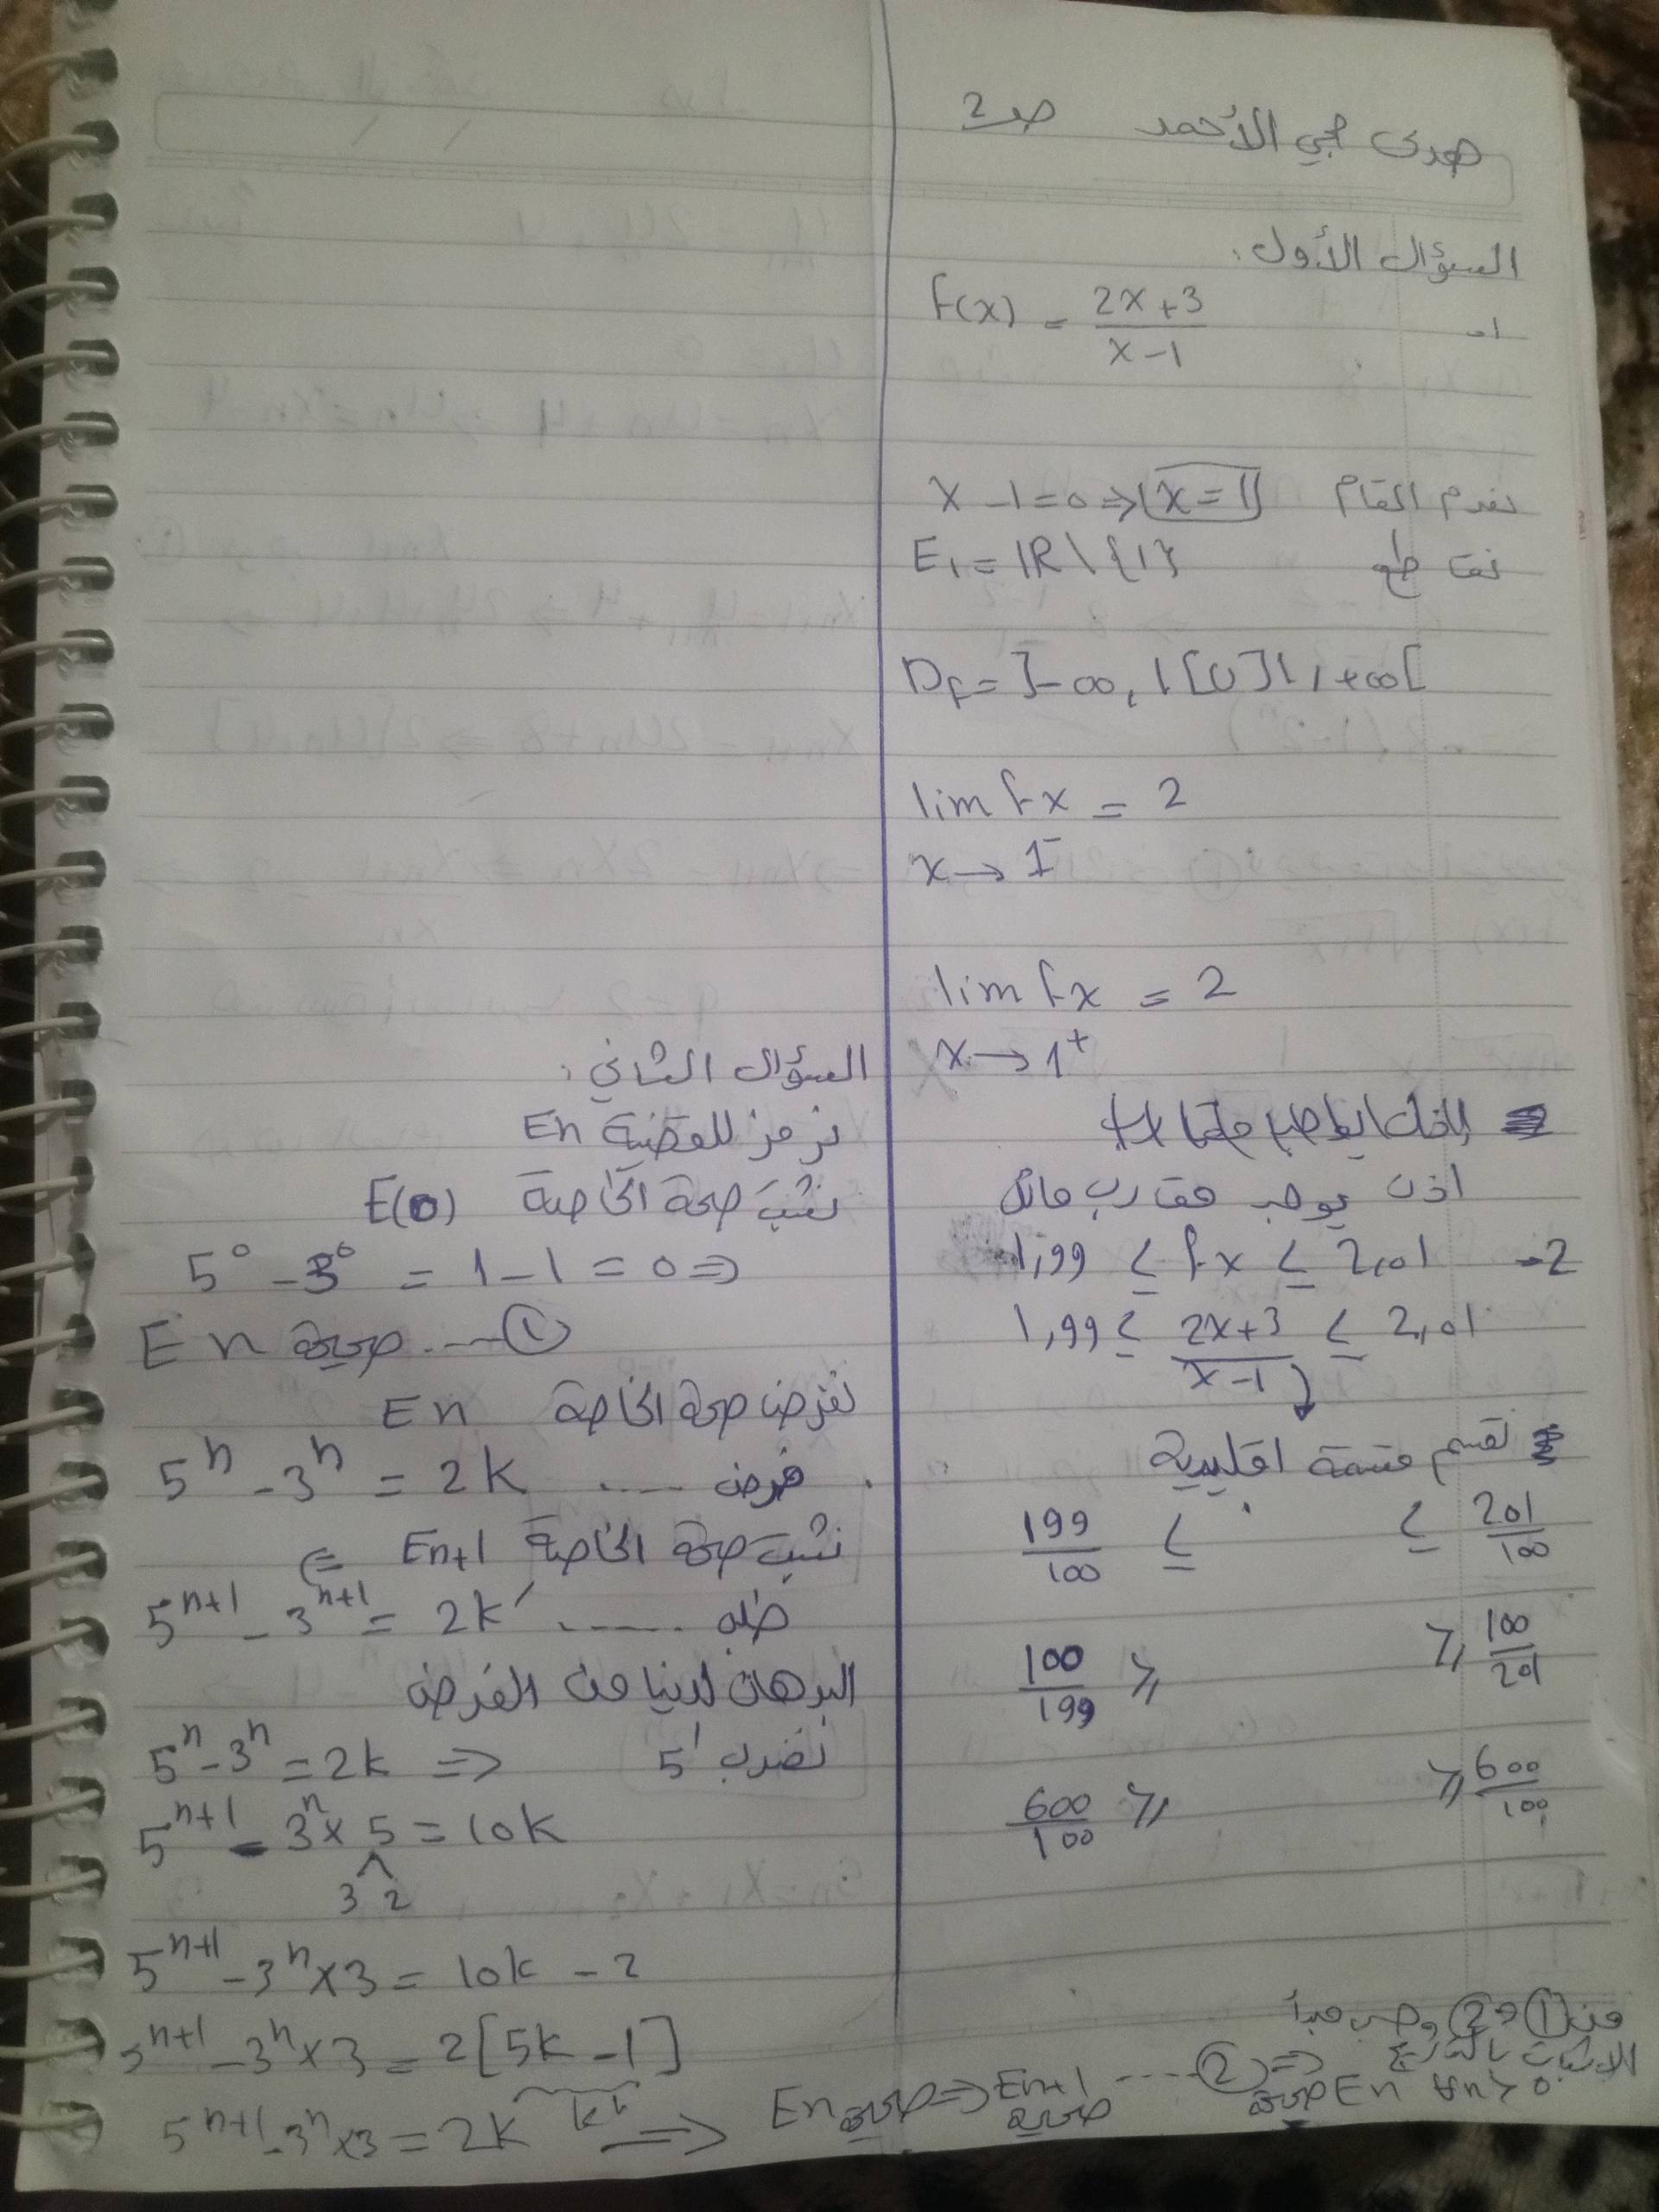 هدى محي الأحمد صـ2
السؤال الأول:
1- f(x) = (2x+3)/(x-1)
نعدم المقام x-1=0 ⇒ x=1
E₁ = ℝ\{1}
Df = ]-∞, 1[ ∪ ]1, +∞[
lim fx = 2
x → 1⁻
lim fx = 2
x → 1⁺
اذن يوجد مقارب مائل
2- 1,99 ≤ fx ≤ 2,01
1,99 ≤ (2x+3)/(x-1) ≤ 2,01
نقسم قسمة اقليدية
199/100 ≤ ≤ 201/100
100/199 ≥ ≥ 100/201
600/100 ≥ ≥ 600/100
السؤال الثاني:
نرمز للقضية En
نثبت صحة الخاصة E(0)
5⁰ - 3⁰ = 1-1 = 0 ⇒
En صحيحة .... ①
نفرض صحة الخاصة En
5ⁿ - 3ⁿ = 2k .... فرض
نثبت صحة الخاصة En+1 ⇐
5ⁿ⁺¹ - 3ⁿ⁺¹ = 2k′ ...... طلب
البرهان لدينا من الفرض
5ⁿ - 3ⁿ = 2k ⇒ نضرب 5¹
5ⁿ⁺¹ - 3ⁿ × 5 = 10k
3 2
5ⁿ⁺¹ - 3ⁿ×3 = 10k - 2
5ⁿ⁺¹ - 3ⁿ×3 = 2[5k - 1]
5ⁿ⁺¹ - 3ⁿ×3 = 2k ⇒ En صحيحة ⇒ En+1 صحيحة .... ②⇒
من ① و ② وحسب مبدأ
الاثبات بالتدريج
En صحيحة ∀n≥0